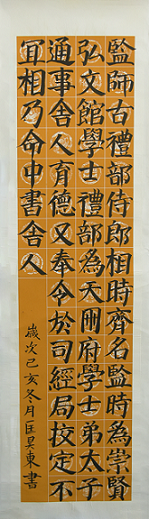 監師古禮部侍郎相時齊名監時為崇賢
弘文館學士禮部為天冊府學士弟太子
通事舍人育德又奉令於司經局校定不
冝相乃命中書舍人
歲次己亥冬月匡吴東書